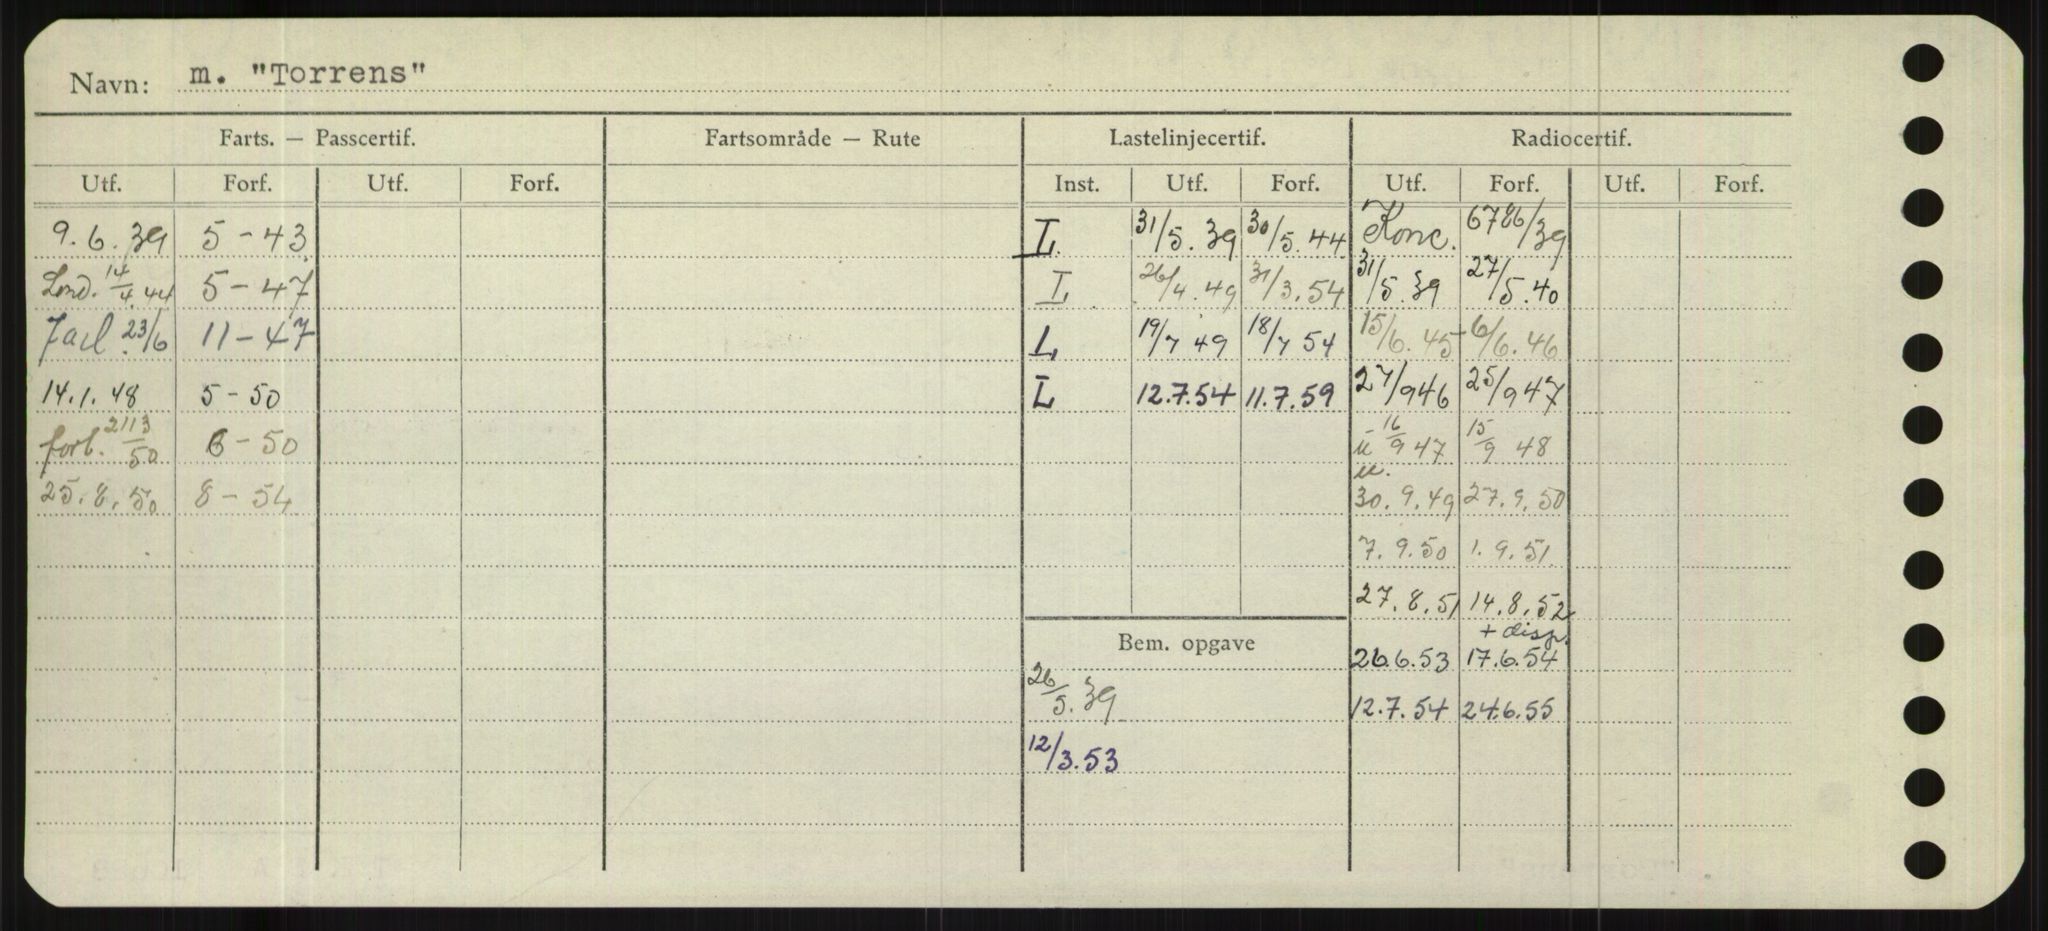 Navn: m. "Torrens"
Farts. — Passcertif. Fartsområde — Rute Lastelinjecertif. Radiocertif.
Utf. Forf. Utf. Forf. Inst. Utf. Forf. Utf. Forf. Utf. Forf.
9.6.39 5-43 L 31/5.39 30/5.44 Konc. 6786/39
Lond. 14/4.44 5-47 L 26/4.49 31/3.54 31/5.39 27/5.40
23/6 11-47 L 19/7 49 18/7 54 15/6.45 6/6.46
14.1.48 5-50 L 12.7.54 11.7.59 27/9 46 25/9 47
forl. 21/3 50 6-50 u 16/9 47 15/9 48
u.
25.8.50 8-54 30.9.49 27.9.50
7.9.50 1.9.51
27.8.51 14.8.52
+ disp.
Bem. opgave 26.6.53 17.6.54
26/5.39 12.7.54 24.6.55
12/3.53